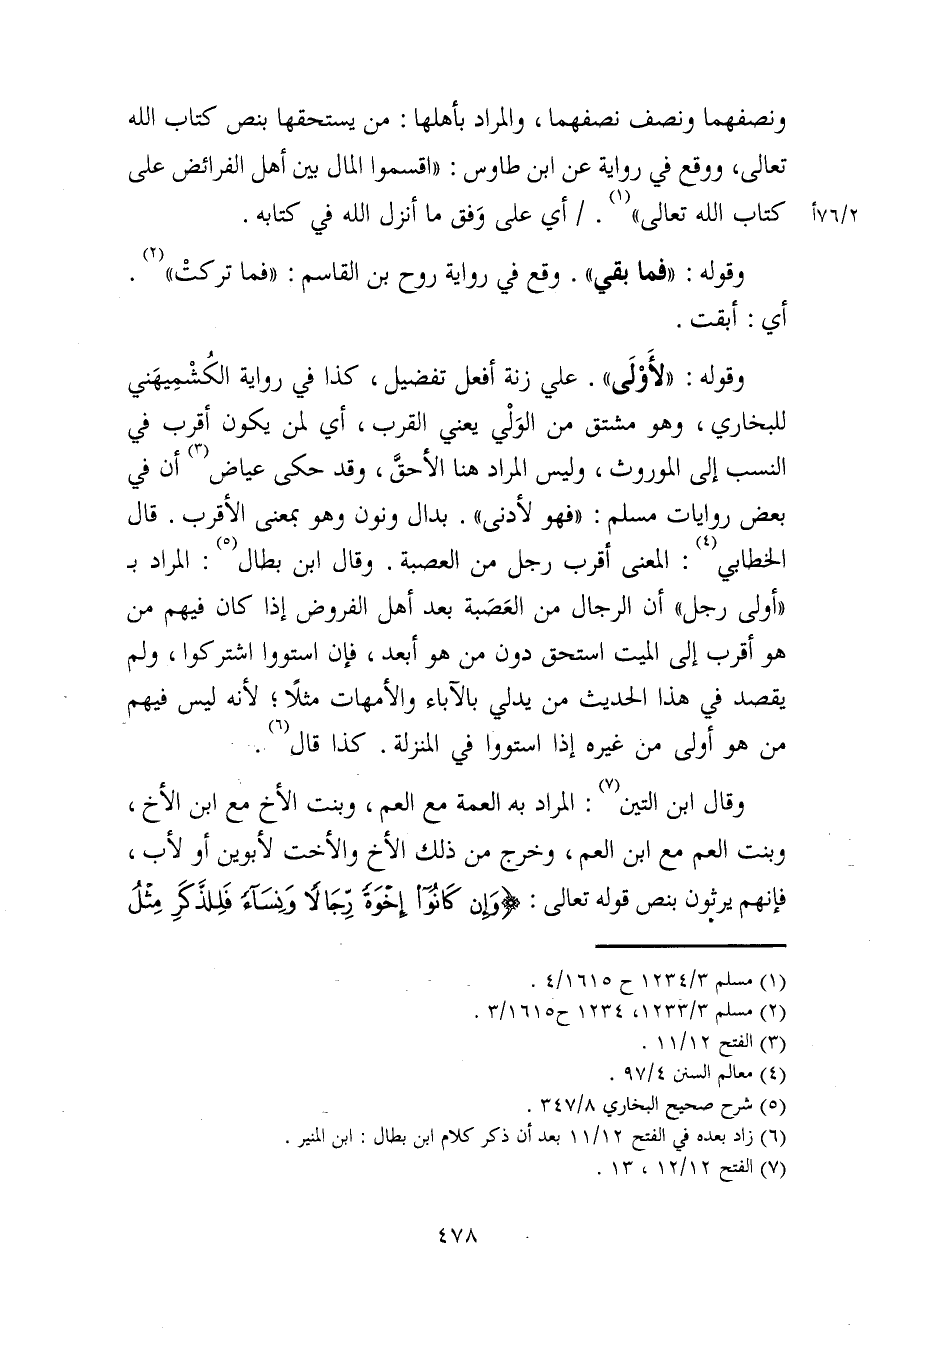 ونصفهما ونصف نصفهما ، والمراد بأهلها : من يستحقها بنص كتاب الله
تعالى، ووقع في رواية عن ابن طاوس : «اقسموا المال بين أهل الفرائض على
كتاب الله تعالى»(١) . / أي على وَفق ما أنزل الله في كتابه .
٧٦/٢أ
وقوله : «فما بقي» . وقع في رواية روح بن القاسم : «فما تركتْ»(٢) .
أي : أبقت .
وقوله : «لأَوْلَى» . علي زنة أفعل تفضيل ، كذا في رواية الكُشْمِيهَني
للبخاري ، وهو مشتق من الوَلْي يعني القرب ، أي لمن يكون أقرب في
النسب إلى الموروث ، وليس المراد هنا الأحقَّ ، وقد حكى عياض(٣) أن في
بعض روايات مسلم : «فهو لأدنى» . بدال ونون وهو بمعنى الأقرب . قال
الخطابي(٤) : المعنى أقرب رجل من العصبة . وقال ابن بطال(٥) : المراد بـ
«أولى رجل» أن الرجال من العَصَبة بعد أهل الفروض إذا كان فيهم من
هو أقرب إلى الميت استحق دون من هو أبعد ، فإن استووا اشتركوا ، ولم
يقصد في هذا الحديث من يدلي بالآباء والأمهات مثلًا ؛ لأنه ليس فيهم
من هو أولى من غيره إذا استووا في المنزلة . كذا قال(٦) .
وقال ابن التين(٧) : المراد به العمة مع العم ، وبنت الأخ مع ابن الأخ ،
وبنت العم مع ابن العم ، وخرج من ذلك الأخ والأخت لأبوين أو لأب ،
فإنهم يرثون بنص قوله تعالى : ﴿وَإِن كَانُوٓا۟ إِخْوَةً رِّجَالًا وَنِسَآءً فَلِلذَّكَرِ مِثْلُ
(١) مسلم ١٢٣٤/٣ ح ٤/١٦١٥ .
(٢) مسلم ١٢٣٣/٣، ١٢٣٤ ح٣/١٦١٥ .
(٣) الفتح ١١/١٢ .
(٤) معالم السنن ٩٧/٤ .
(٥) شرح صحيح البخاري ٣٤٧/٨ .
(٦) زاد بعده في الفتح ١١/١٢ بعد أن ذكر كلام ابن بطال : ابن المنير .
(٧) الفتح ١٢/١٢ ، ١٣ .
٤٧٨